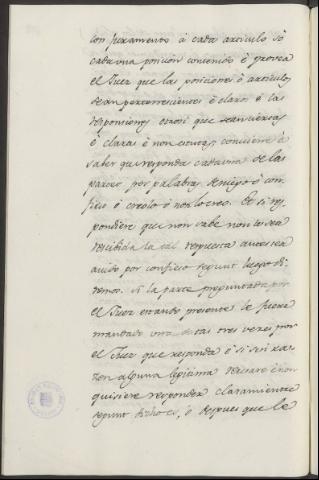 con juramento à cada articulo ò
cada una posicion contenido è provea
el Juez que las posiciones ò articulos
sean pertenecientes è claros è las
responsiones eso si que sean ciertas
è claras è non escuras, conviene à
saber que responda cada una de las
partes por palabras de niego ò con-
fieso è creolo ò non lo creo. Et si res-
pondiere que non sabe non le sea
rescibida la tal respuesta antes sea
avido por confieso segunt luego di-
remos. Si la parte preguntada por
el Juez estando presente le fuere
mandado una dos tres veces por
el Juez que responda è si sin ra-
zon alguna legitima dexare è non
quisiere responder claramientre
segunt dicho es, ò despues que le